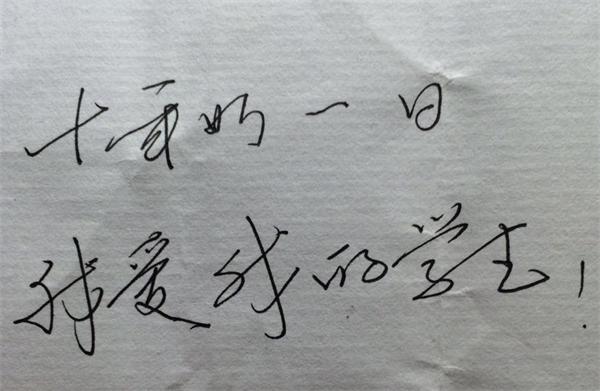 十年如一日
我爱我的学生!